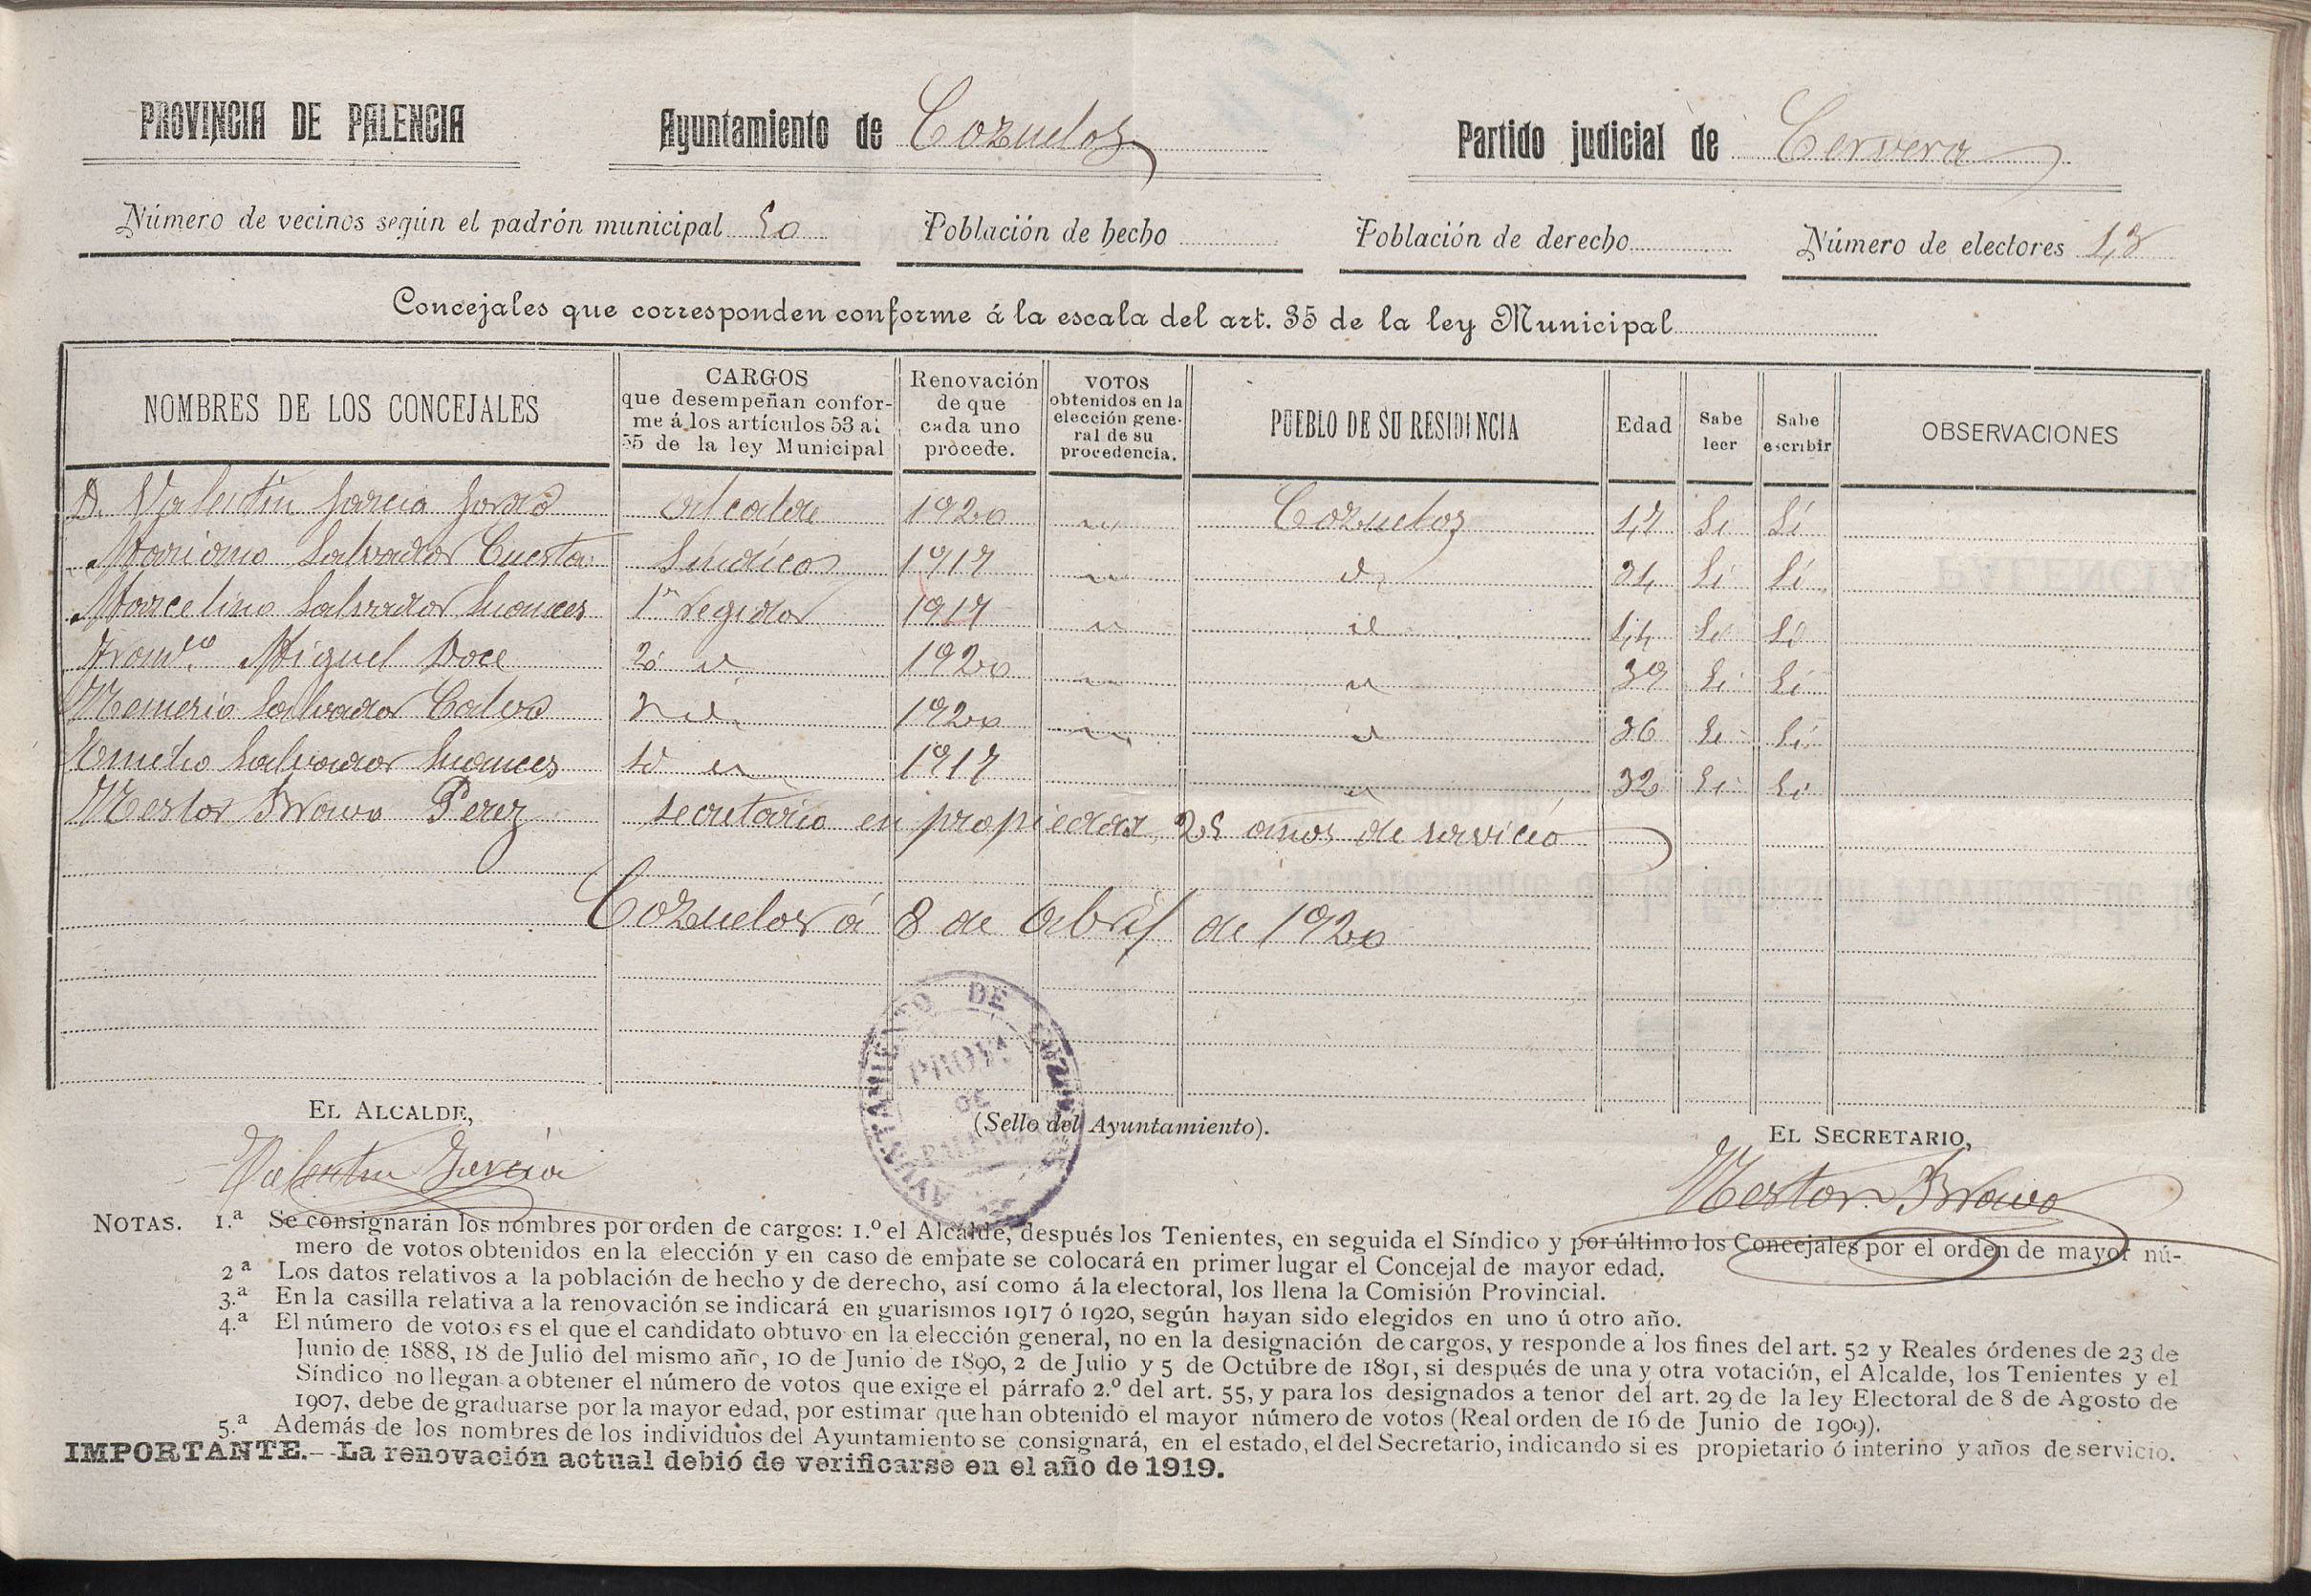 PROVINCIA DE PALENCIA
Ayuntamiento de Cozuelos
Partido judicial de Cervera
Número de vecinos según el padrón municipal 50
Población de hecho
Población de derecho
Número de electores
Concejales que corresponden conforme á la escala del art. 35 de la ley Municipal
NOMBRES DE LOS CONCEJALES
CARGOS
que desempeñan confor-
me á los artículos 53 al
55 de la ley Municipal
Renovación
de que
cada uno
procede.
VOTOS
obtenidos en la
elección gene-
ral de su
procedencia.
PUEBLO DE SU RESIDENCIA
Edad
Sabe
leer
Sabe
escribir
OBSERVACIONES
D. Valentin Garcia Alcalde 1920 " Cozuelos 47 Si Si
Mariano Salvador Cuesta Sindico 1917 " id 34 Si Si
Marcelino Salvador 1r Regidor 1917 " id 44 Si Si
Miguel 2º id 1920 " id 39 Si Si
Salvador Calvo 3 id 1920 " id 36 Si Si
Salvador 4º id 1917 id 32 Si Si
Nestor Bravo Perez secretario en propiedad, 25 años de servicio
Cozuelos á 8 de Abril de 1920
AYUNTAMIENTO DE COZUELOS
PROVA
DE
PALENCIA
EL ALCALDE,
(Sello del Ayuntamiento).
EL SECRETARIO,
Valentin Garcia
Nestor Bravo
NOTAS. 1.ª Se consignarán los nombres por orden de cargos: 1.º el Alcalde, después los Tenientes, en seguida el Síndico y por último los Concejales por el orden de mayor nú-
mero de votos obtenidos en la elección y en caso de empate se colocará en primer lugar el Concejal de mayor edad.
2ª Los datos relativos a la población de hecho y de derecho, así como á la electoral, los llena la Comisión Provincial.
3.ª En la casilla relativa a la renovación se indicará en guarismos 1917 ó 1920, según hayan sido elegidos en uno ú otro año.
4.ª El número de votos es el que el candidato obtuvo en la elección general, no en la designación de cargos, y responde a los fines del art. 52 y Reales órdenes de 23 de
Junio de 1888, 18 de Julio del mismo año, 10 de Junio de 1890, 2 de Julio y 5 de Octubre de 1891, si después de una y otra votación, el Alcalde, los Tenientes y el
Síndico no llegan a obtener el número de votos que exige el párrafo 2.º del art. 55, y para los designados a tenor del art. 29 de la ley Electoral de 8 de Agosto de
1907, debe de graduarse por la mayor edad, por estimar que han obtenido el mayor número de votos (Real orden de 16 de Junio de 1909).
5.ª Además de los nombres de los individuos del Ayuntamiento se consignará, en el estado, el del Secretario, indicando si es propietario ó interino y años de servicio.
IMPORTANTE.--La renovación actual debió de verificarse en el año de 1919.